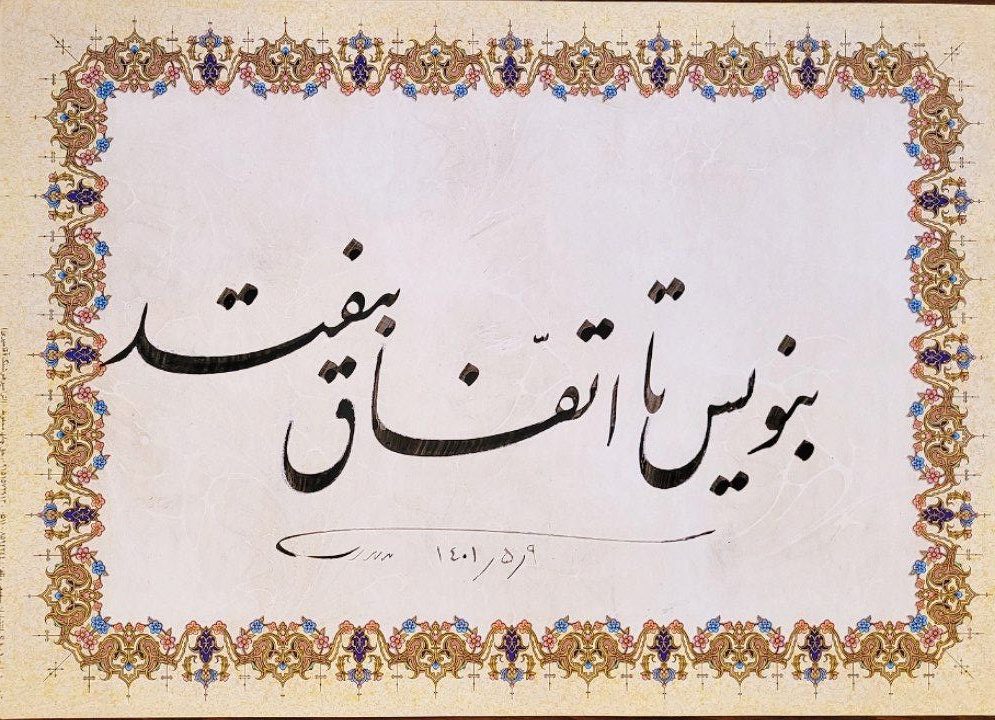 بنویس تا اتّفاق بیفتد
۱۴۰۱/۵/۹